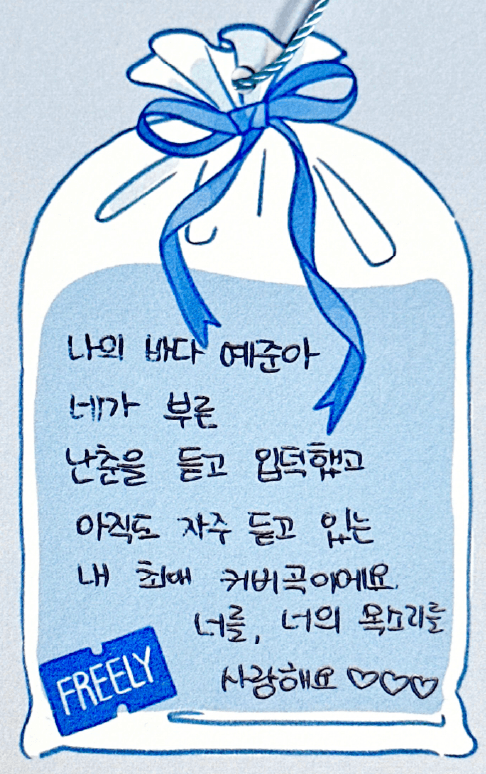 나의 바다 예준아
네가 부른
난춘을 듣고 입덕했고
아직도 자주 듣고 있는
내 최애 커버곡이에요
너를, 너의 목소리를
사랑해요 ♡♡♡
FREELY